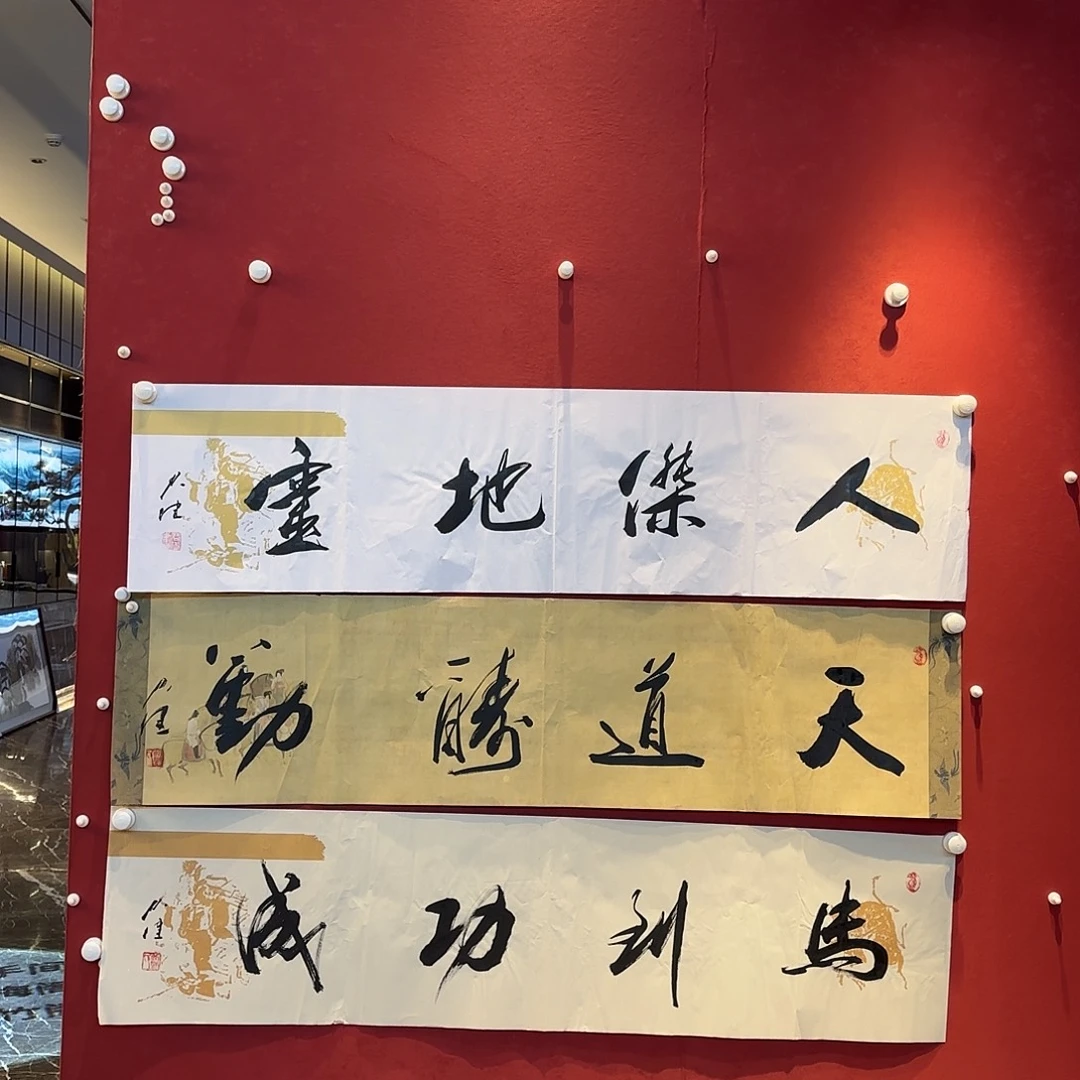 人傑地靈
天道醻勤
馬到功成